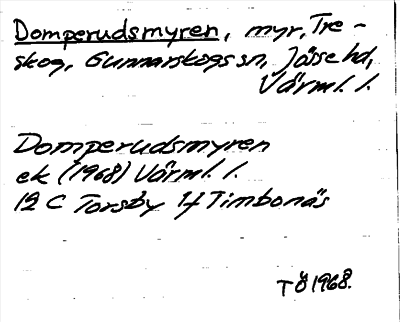 Domperudsmyren, myr, Tre-
skog, Gunnarskogs sn, Jösse hd,
Värml. l.
Domperudsmyren
ek (1968) Värml. l.
12 C Torsby 1f Timbonäs
TÖ 1968.